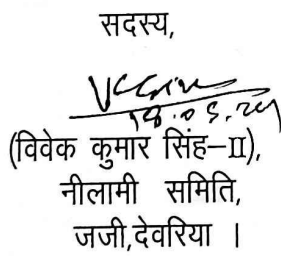 सदस्य,
(विवेक कुमार सिंह–II),
नीलामी समिति,
जजी,देवरिया ।